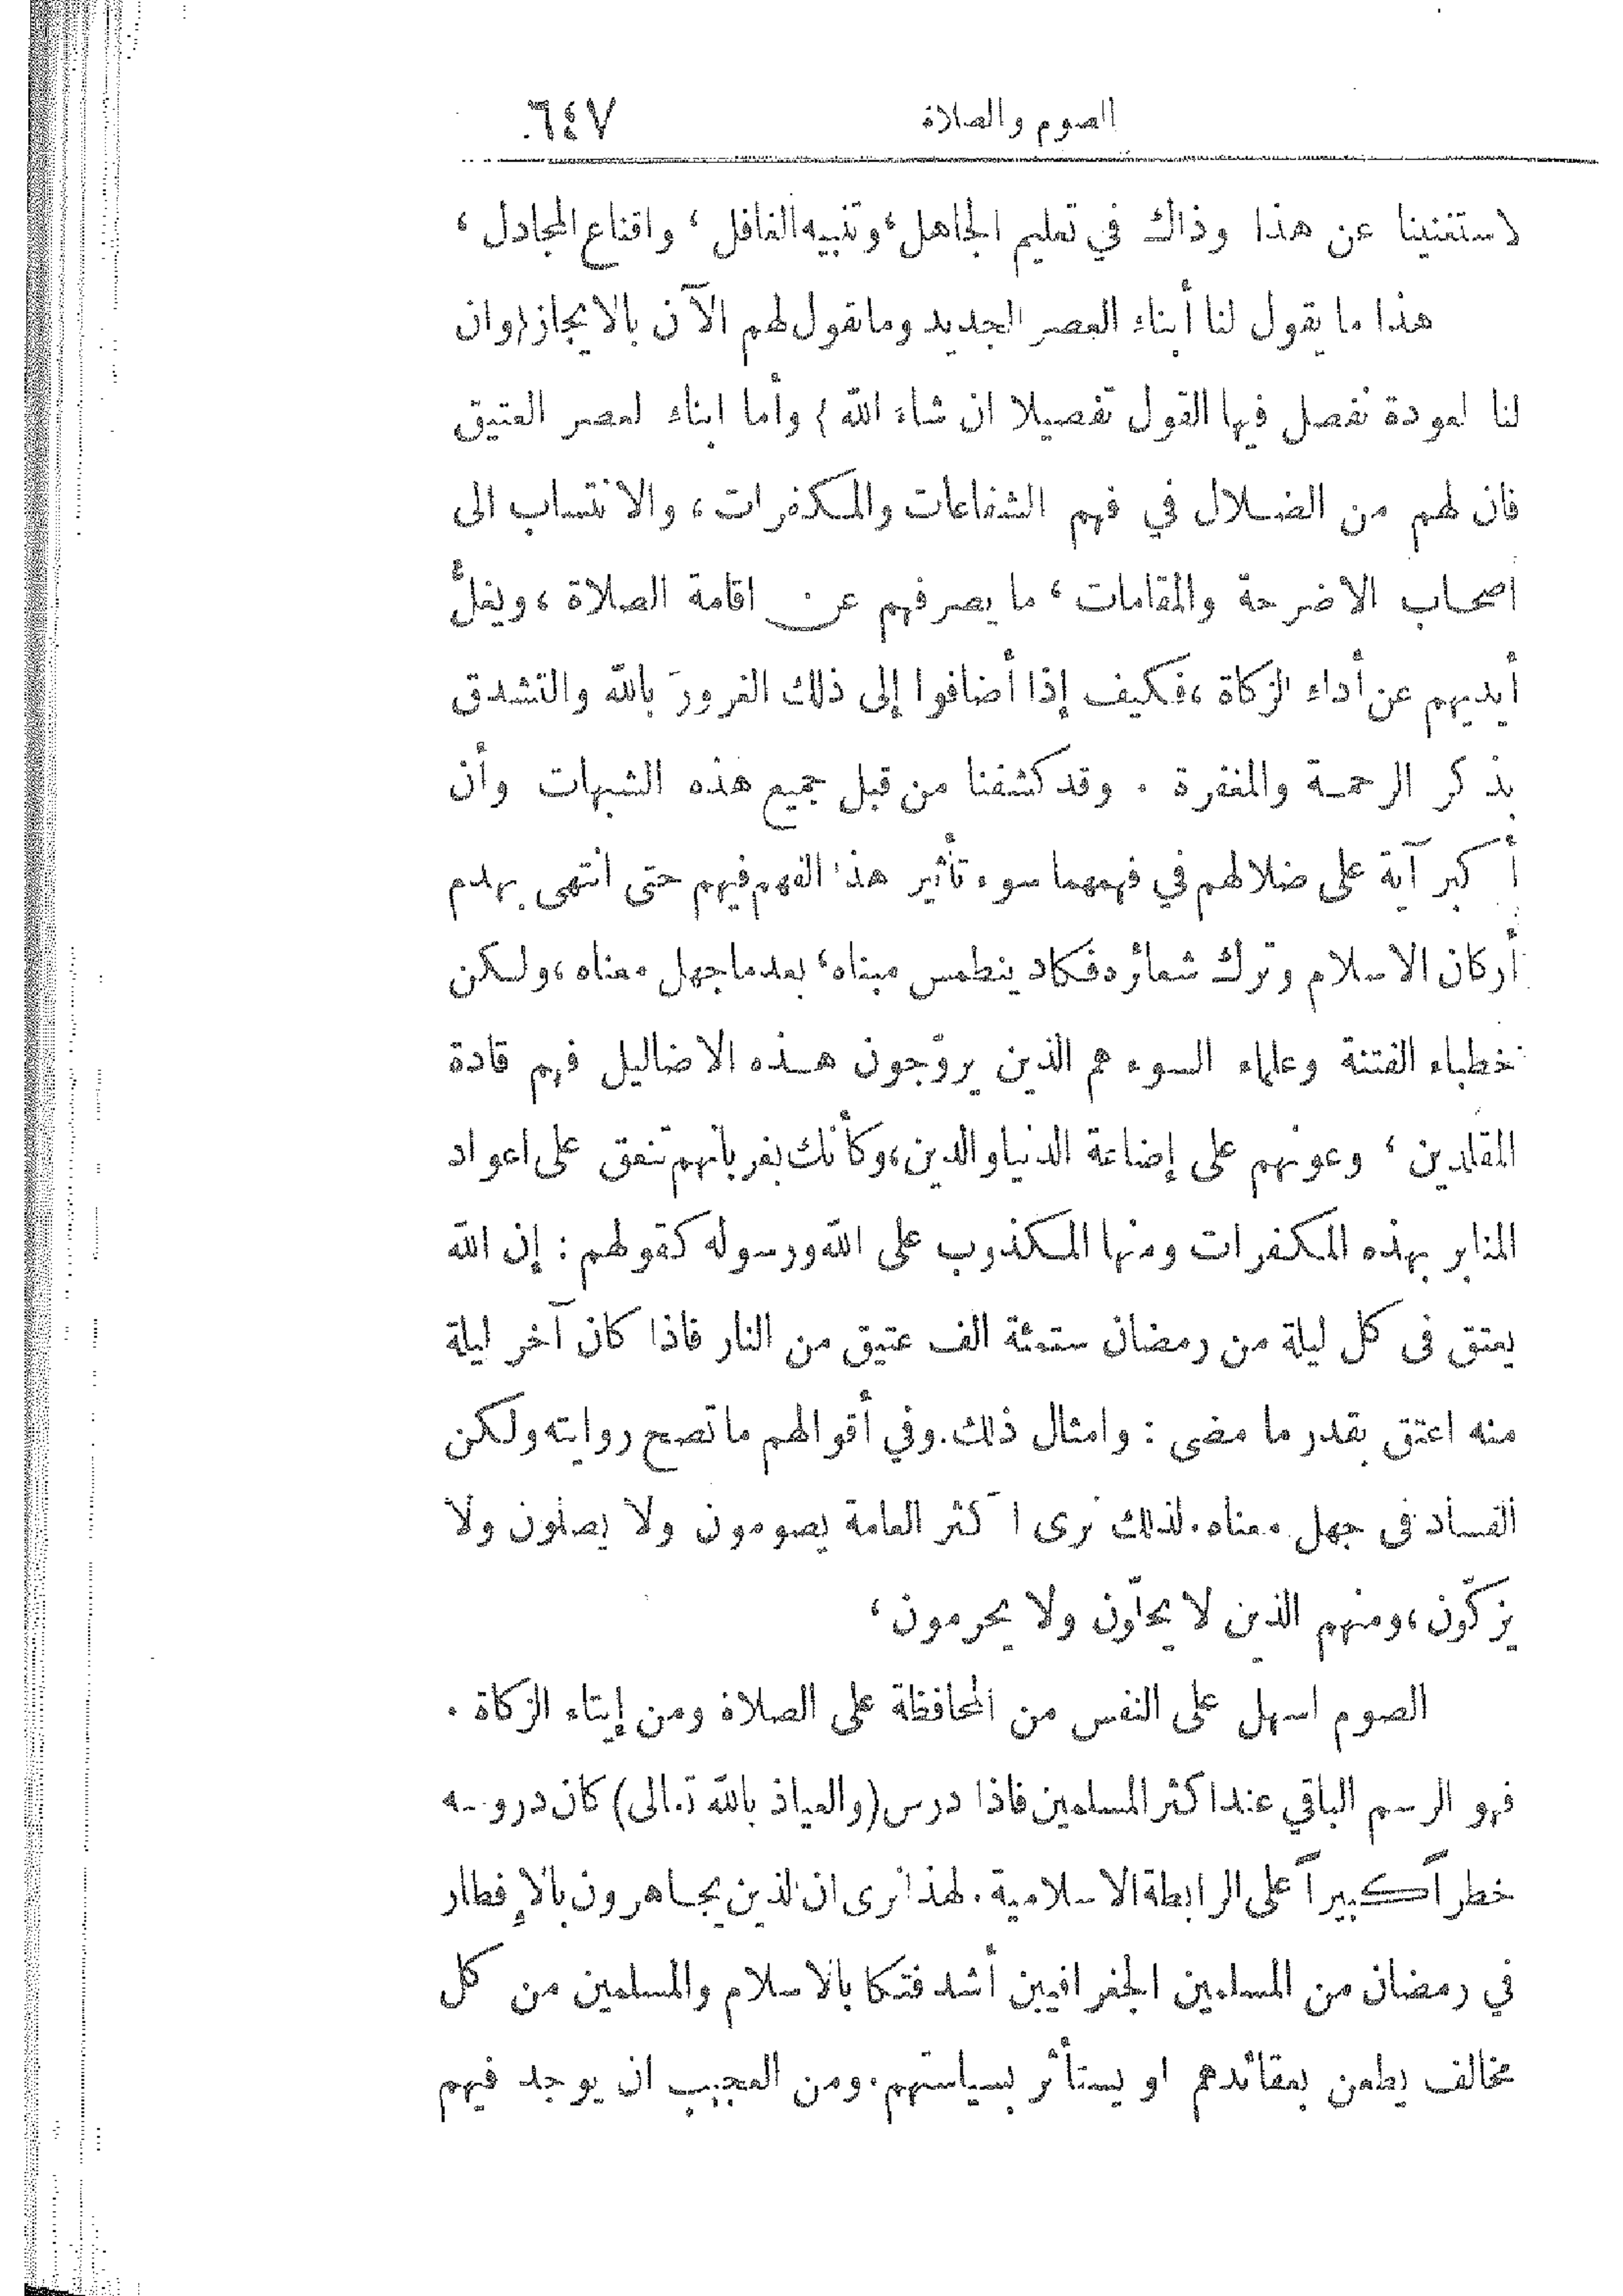 الصوم والصلاة ٦٤٧
لاستغنينا عن هذا وذاك في تعليم الجاهل، وتنبيه الغافل، واقناع المجادل،
هذا ما يقول لنا أبناء العصر الجديد وما نقول لهم الآن بالايجاز (وان
لنا لعودة نفصل فيها القول تفصيلا ان شاء الله) وأما ابناء لعصر العتيق
فان لهم من الضلال في فهم الشفاعات والمكفرات، والانتساب الى
اصحاب الاضرحة والمقامات، ما يصرفهم عن اقامة الصلاة، ويغلُّ
أيديهم عن أداء الزكاة، فكيف إذا أضافوا إلى ذلك الغرورَ بالله والتشدق
بذكر الرحمة والمغفرة . وقد كشفنا من قبل جميع هذه الشبهات وأن
أكبر آية على ضلالهم في فهمهما سوء تأثير هذا الفهم فيهم حتى انتهى بهدم
أركان الاسلام وترك شعائره فكاد ينطمس مبناه، بعد ما جهل معناه، ولكن
خطباء الفتنة وعلماء السوء هم الذين يروّجون هذه الاضاليل فهم قادة
المقلدين، وعونهم على إضاعة الدنيا والدين، وكأنك بغربانهم تنغق على اعواد
المنابر بهذه المكفرات ومنها المكذوب على الله ورسوله كقولهم : إن الله
يعتق في كل ليلة من رمضان ستمئة الف عتيق من النار فاذا كان آخر ليلة
منه اعتق بقدر ما مضى : وامثال ذلك. وفي أقوالهم ما تصح روايته ولكن
الفساد في جهل معناه. لذلك نرى اكثر العامة يصومون ولا يصلون ولا
يزكّون، ومنهم الذين لا يحلّون ولا يحرمون،
الصوم اسهل على النفس من المحافظة على الصلاة ومن إيتاء الزكاة .
فهو الرسم الباقي عند اكثر المسلمين فاذا درس (والعياذ بالله تعالى) كان دروسه
خطراً كبيراً على الرابطة الاسلامية. لهذا نرى ان الذين يجاهرون بالإفطار
في رمضان من المسلمين الجغرافيين أشد فتكا بالاسلام والمسلمين من كل
مخالف يطعن بعقائدهم او يستأثر بسياستهم. ومن العجيب ان يوجد فيهم